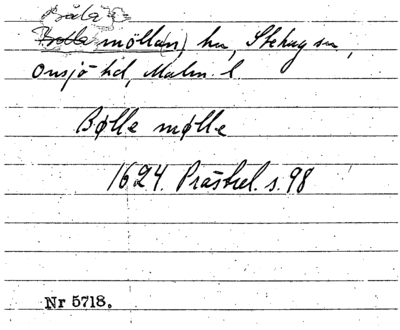 Båda
möllan) hu, Stehag sn,
Onsjö hd, Malm. l.
Bølle mølle
1624. Prästrel. s. 98
Nr 5718.